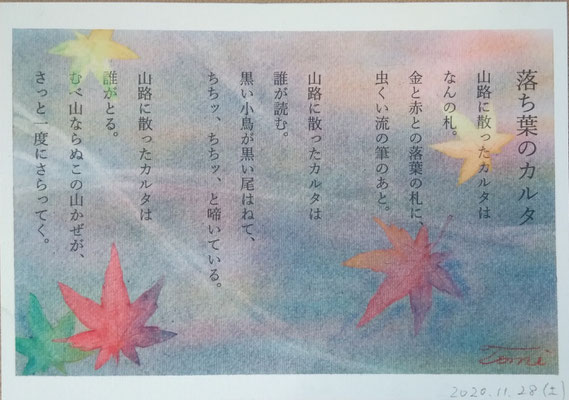 落ち葉のカルタ
山路に散ったカルタは
なんの札。
金と赤との落葉の札に、
虫くい流の筆のあと。
山路に散ったカルタは
誰が読む。
黒い小鳥が黒い尾はねて、
ちちッ、ちちッ、と啼いている。
山路に散ったカルタは
誰がとる。
むべ山ならぬこの山かぜが、
さっと一度にさらってく。
Tomi
2020.11.28(土)